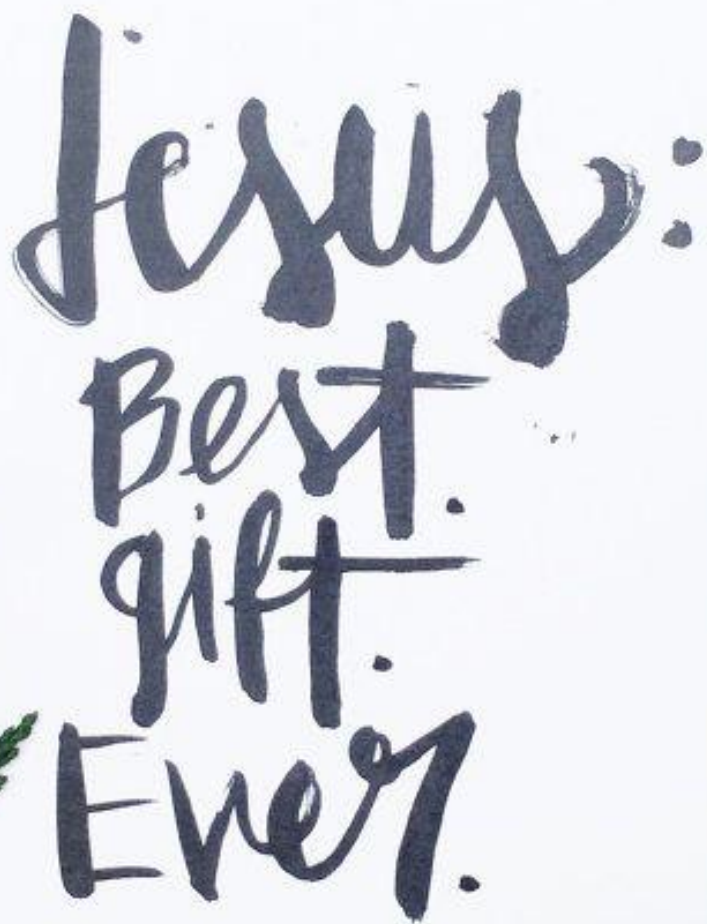 Jesus:
Best.
gift.
Ever.